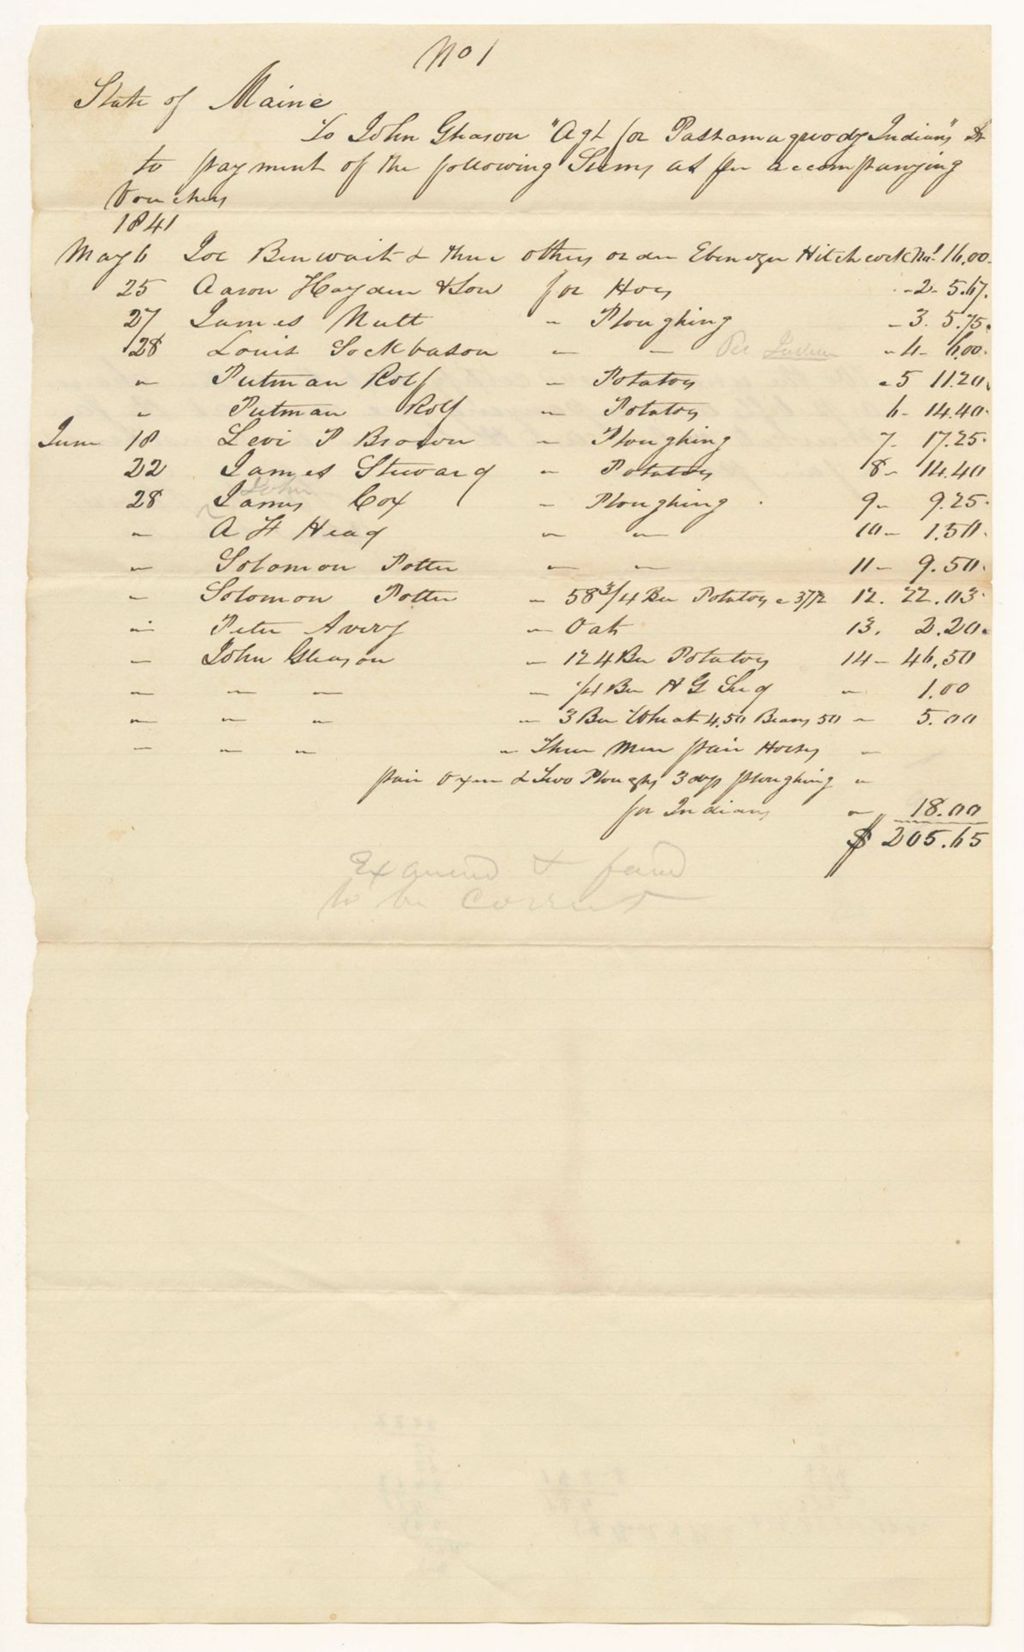 No 1
State of Maine
To John Gleason "Agt for Passamaquody Indians" Dr
to payment of the following Sums as per accompanying
Vouchers
1841
May 6 Joe Benwait & three others order Ebenezer Hitchcock No. 1 16.00
25 Aaron Hayden & Son for Hoes - 2 - 5.67.
27 James Nutt " Ploughing - 3. 5.75.
28 Louis Sockbason " " Per Indian " 4 - 6.00.
" Putman Rolf " Potatoes " 5 11.20.
" Putman Rolf " Potatoes 6 - 14.40.
June 18 Levi P Brown " Ploughing 7 - 17.25.
22 James Steward " Potatoes 8 - 14.40
John
28 James Cox " Ploughing . 9 - 9.25.
" A H Head " " 10 - 1.50.
" Solomon Potter " " 11 - 9.50.
" Solomon Potter " 58 3/4 Bu Potatoes @ 37 1/2 12. 22.03.
" Peter Avery " Oats 13. 2.20.
" John Gleason " 124 Bu Potatoes 14 - 46.50
" " " " " 1/4 Bu H G Seed " 1.00
" " " " " 3 Bu Wheat 4.50 Beans 50 " 5.00
" " " " " Three Men pair Horses "
pair Oxen & Two Ploughs 3 days ploughing "
for Indians " 18.00
$ 205.65
Examined & found
to be Correct